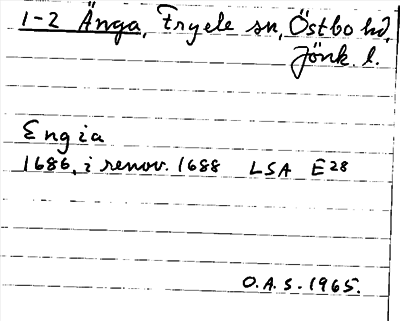 1-2 Änga, Fryele sn, Östbo hd,
Jönk. l.
Engia
1686, i renov. 1688 LSA E28
O.A.S. 1965.